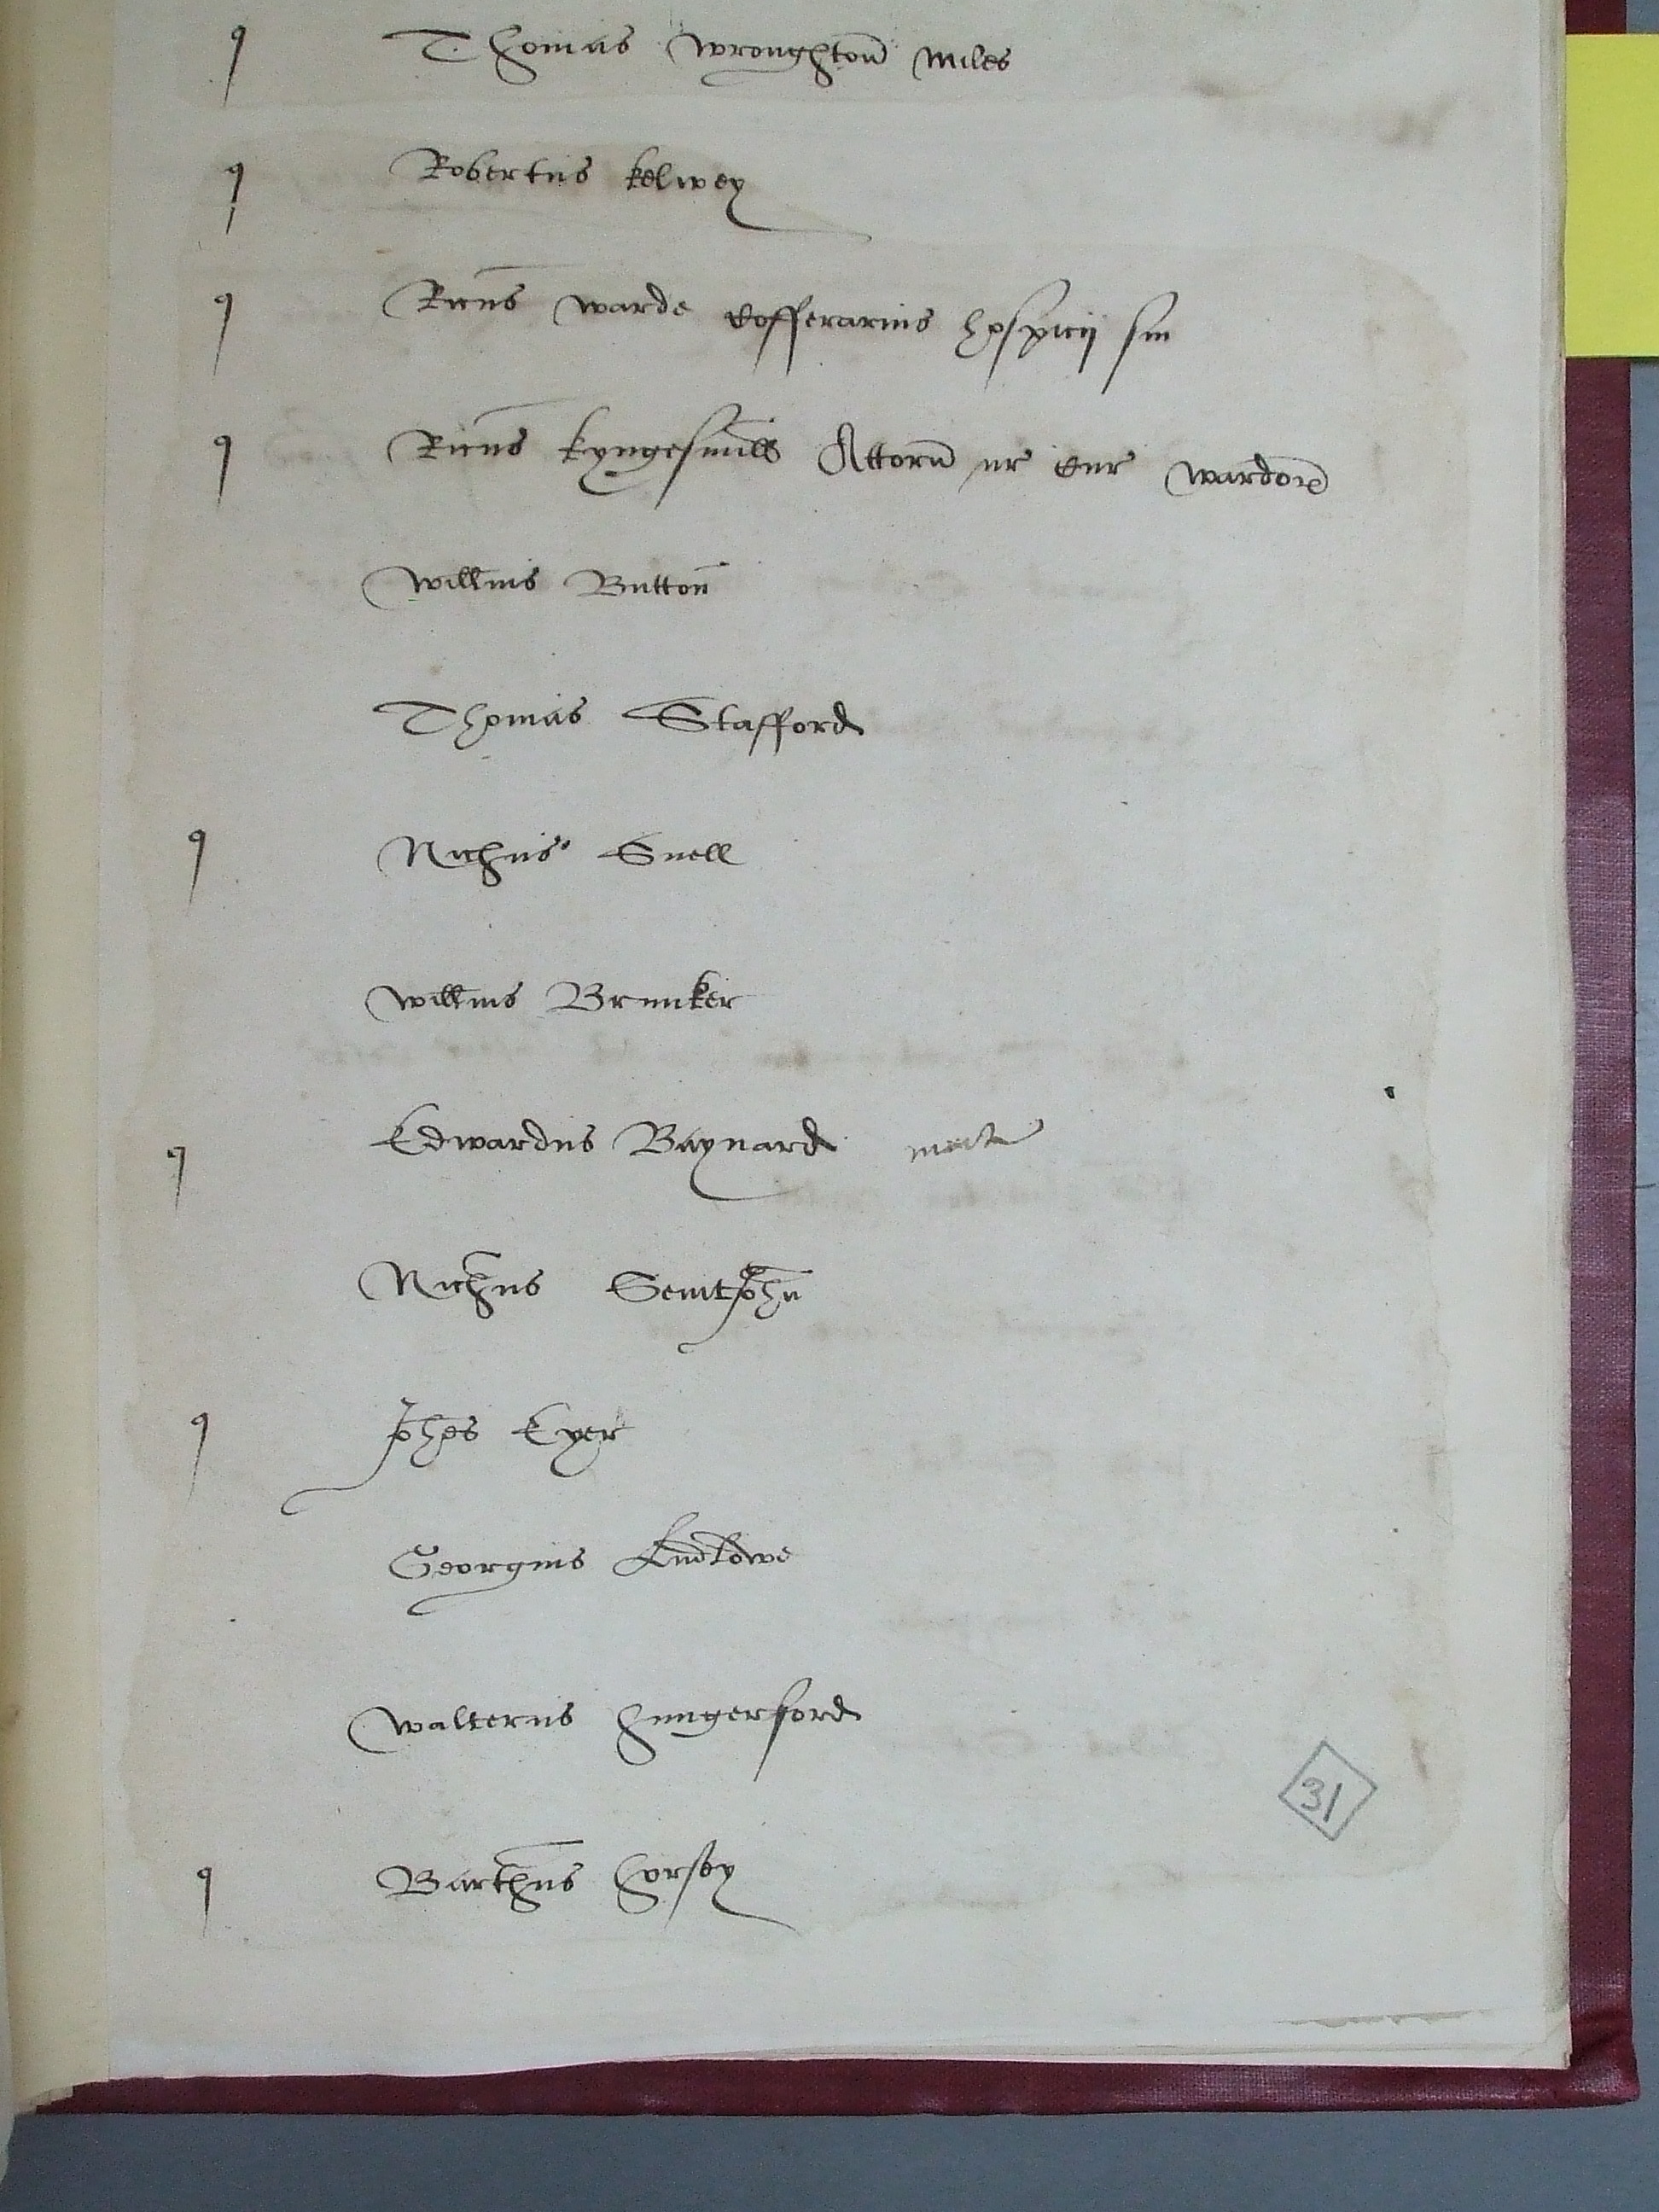 q Thomas Wroughton miles
q Robertus Kelwey
q Ricus Warde Cofferarius hospicij sui
q Ricus Kyngesmill Attorn nr Cur Wardor
Willmus Button
Thomas Stafford
q Nichus Snell
Willmus Brunker
q Edwardus Baynard
Nichus Seintjohn
q Johes Eyer
Georgius Ludlowe
Walterus Hungerford
31
q Barthus Horsey